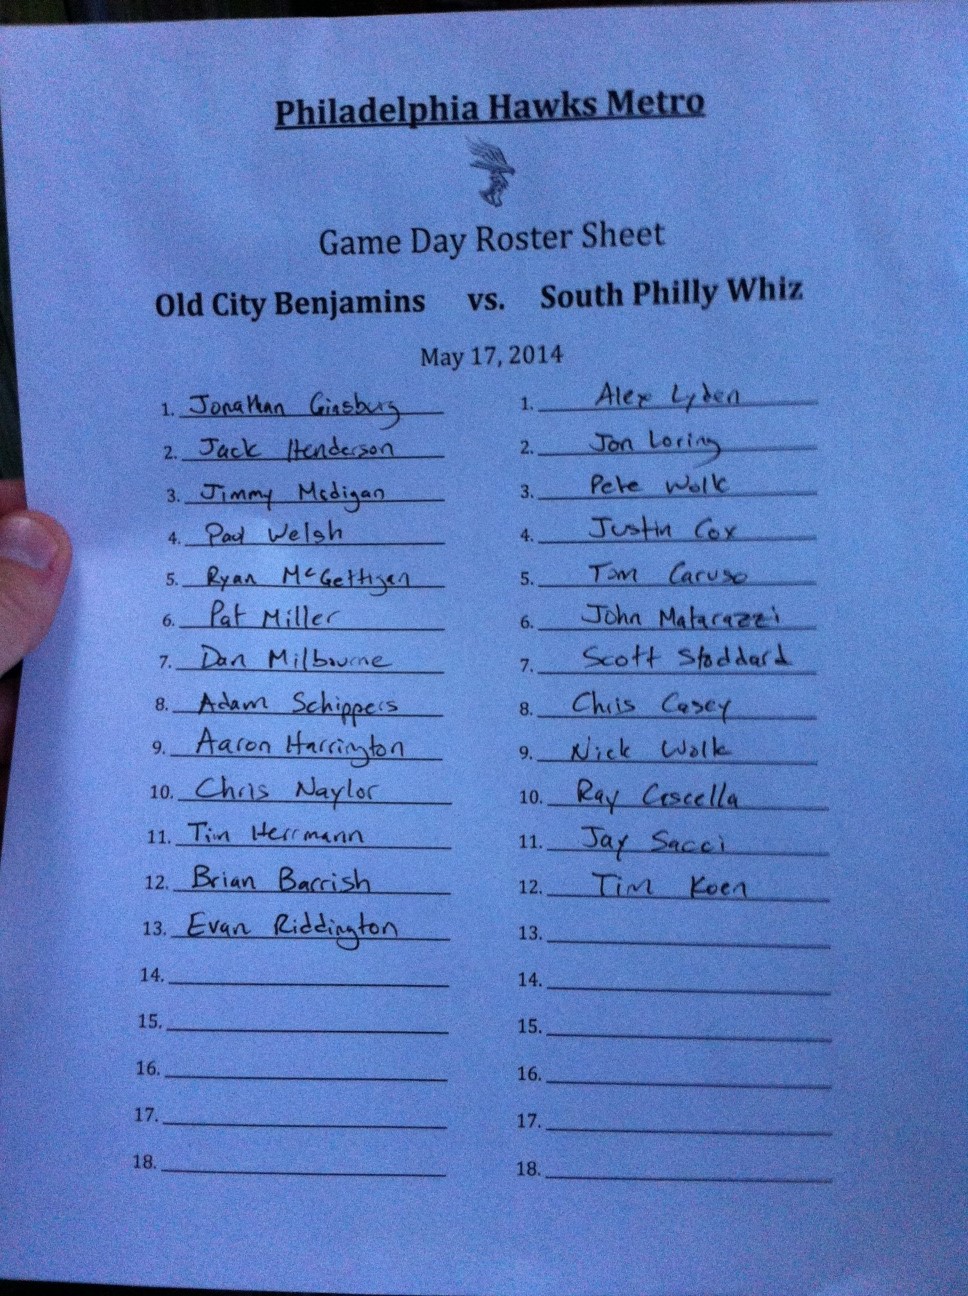 Philadelphia Hawks Metro
Game Day Roster Sheet
Old City Benjamins vs. South Philly Whiz
May 17, 2014
1. Jonathan Ginsburg
2. Jack Henderson
3. Jimmy Madigan
4. Paul Welsh
5. Ryan McGettigan
6. Pat Miller
7. Dan Milbourne
8. Adam Schippers
9. Aaron Harrington
10. Chris Naylor
11. Tim Herrmann
12. Brian Barrish
13. Evan Riddington
14.
15.
16.
17.
18.
1. Alex Lyden
2. Jon Loring
3. Pete Wolk
4. Justin Cox
5. Tom Caruso
6. John Matarazzi
7. Scott Stoddard
8. Chris Casey
9. Nick Wolk
10. Ray
11. Jay Sacci
12. Tim Koen
13.
14.
15.
16.
17.
18.